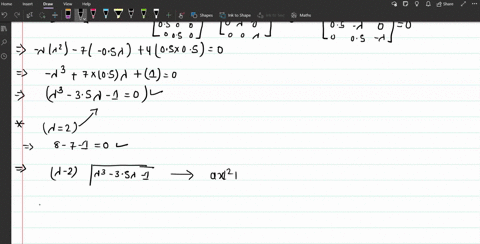 File Home Insert Draw View Help
Ink to Shape Ink to Text Maths
0.5 0 0 0 0 0.5 -λ 0 =0
0 0.5 0 0 0 λ 0 0.5 -λ
⇒ -λ(λ²) - 7(-0.5λ) + 4(0.5×0.5) = 0
⇒ -λ³ + 7×(0.5)λ + (1) = 0
⇒ (λ³ - 3.5λ - 1 = 0) ✓
* (λ=2)
⇒ 8 - 7 - 1 = 0 ✓
⇒ (λ-2) λ³ - 3.5λ - 1 → aλ² +